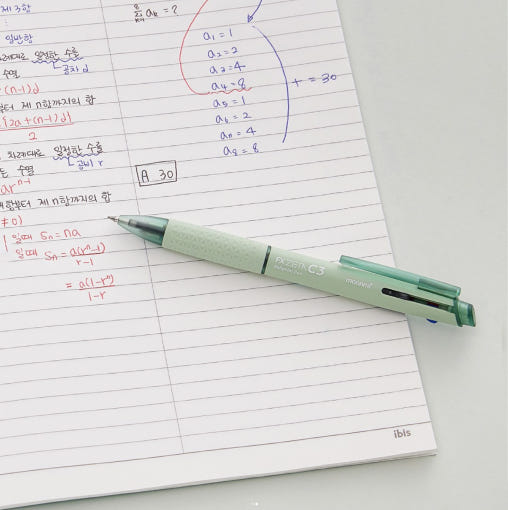 제 3항
:
일반항
차례대로 일정한 수를
수열 └ 공차 d
(n-1)d
부터 제 n항까지의 합
{2a+(n-1)d}
2
차례대로 일정한 수를
는 수열 └ 공비 r
ar^n-1
제 n항까지의 합
≠0)
1 일때 Sn = na
일때 Sn = a(r^n-1)
r-1
= a(1-r^n)
1-r
8
Σ ak = ?
a1 = 1
a2 = 2
a3 = 4
a4 = 8
a5 = 1
a6 = 2
an = 4
a8 = 8
+ = 30
A 30
C3
monami
ibis